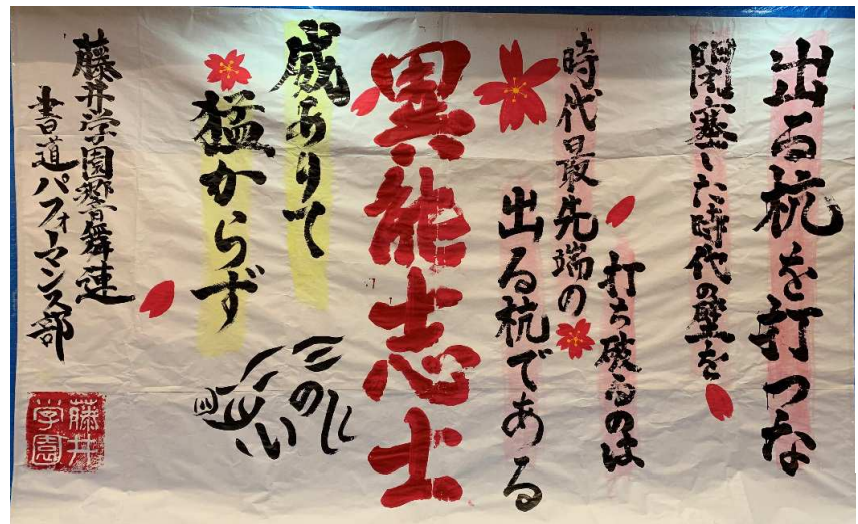 出る杭を打つな
閉塞した時代の壁を
打ち破るのは
時代最先端の
出る杭である
異能志士
威ありて
猛からず
藤井学園響舞連
書道パフォーマンス部
藤井
学園